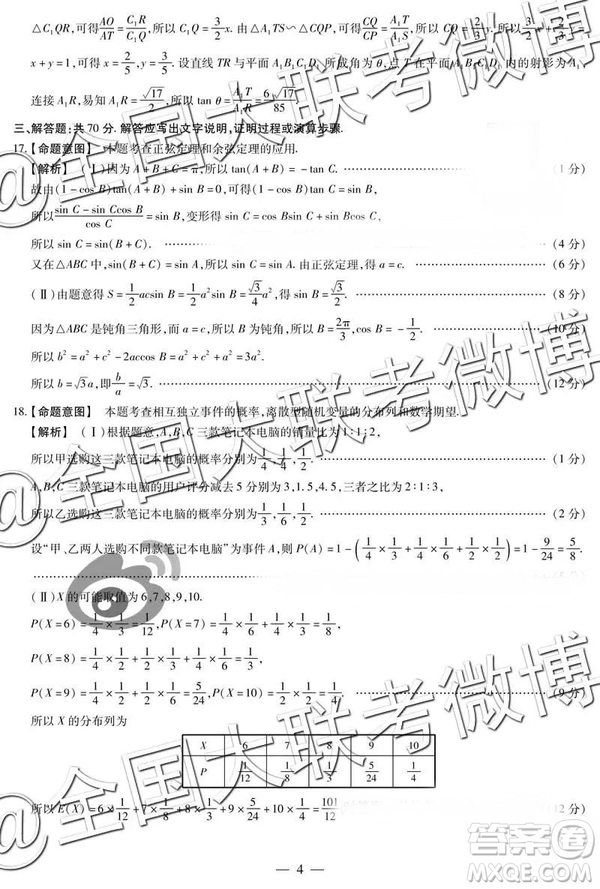 △C₁QR,可得AO/AT=C₁R/C₁Q,所以 C₁Q=3/2x. 由△A₁TS∽△CQP,可得CQ/CP=A₁T/A₁S,所以
x+y=1,可得 x=2/5,y=3/5. 设直线 TR 与平面 A₁B₁C₁D₁ 所成角为 θ,点 T 在平面 A₁B₁C₁D₁ 内的射影为A₁,
连接 A₁R,易知 A₁R=√17/2,所以 tan θ=A₁T/A₁R=6√17/85.
三、解答题:共 70 分. 解答应写出文字说明,证明过程或演算步骤.
17.【命题意图】 本题考查正弦定理和余弦定理的应用.
【解析】 (Ⅰ)因为 A+B+C=π,所以 tan(A+B)=-tan C. (1 分)
故由(1-cos B)tan(A+B)+sin B=0,可得(1-cos B)tan C=sin B,
所以(sin C-sin Ccos B)/cos C=sin B,变形得 sin C=sin Bcos C+cos Bsin C,
所以 sin C=sin(B+C). (4 分)
又在△ABC 中,sin(B+C)=sin A,所以 sin C=sin A. 由正弦定理,得 a=c. (6 分)
(Ⅱ)由题意得 S=1/2acsin B=1/2a²sin B=√3/4a²,得 sin B=√3/2. (8 分)
因为△ABC 是钝角三角形,而 a=c,所以 B 为钝角,所以 B=2π/3,cos B=-1/2. (10 分)
所以 b²=a²+c²-2accos B=3a².
所以 b=√3a,即b/a=√3. (12 分)
18.【命题意图】 本题考查相互独立事件的概率,离散型随机变量的分布列和数学期望.
【解析】 (Ⅰ)根据题意,A,B,C 三款笔记本电脑的销量比为 1:1:2,
所以甲选购这三款笔记本电脑的概率分别为1/4,1/4,1/2. (1 分)
A,B,C 三款笔记本电脑的用户评分减去 5 分别为 3,1.5,4.5,三者之比为 2:1:3,
所以乙选购这三款笔记本电脑的概率分别为1/3,1/6,1/2. (2 分)
设“甲、乙两人选购不同款笔记本电脑”为事件 A,则 P(A)=1-(1/4×1/3+1/4×1/6+1/2×1/2)=1-9/24=5/8.
(Ⅱ)X 的可能取值为 6,7,8,9,10.
P(X=6)=1/4×1/3=1/12,P(X=7)=1/4×1/2=1/8,
P(X=8)=
P(X=9)= =5/24,P(X=10)=1/2×1/2=1/4. (9 分)
所以 X 的分布列为
X 6 7 8 9 10
P 1/12 1/8 1/3 5/24 1/4
所以 E(X)=6×1/12+7×1/8+8×1/3+9×5/24+10×1/4=101/12. (12 分)
— 4 —
@全国大联考微博
@全国大联考微博
@全国大联考微博
答案圈
MXQE.COM